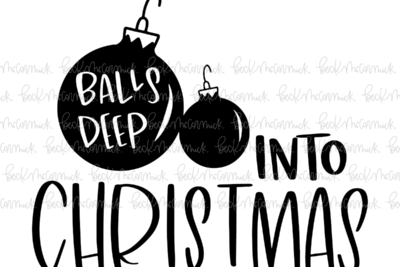 BALLS
DEEP
INTO
CHRISTMAS